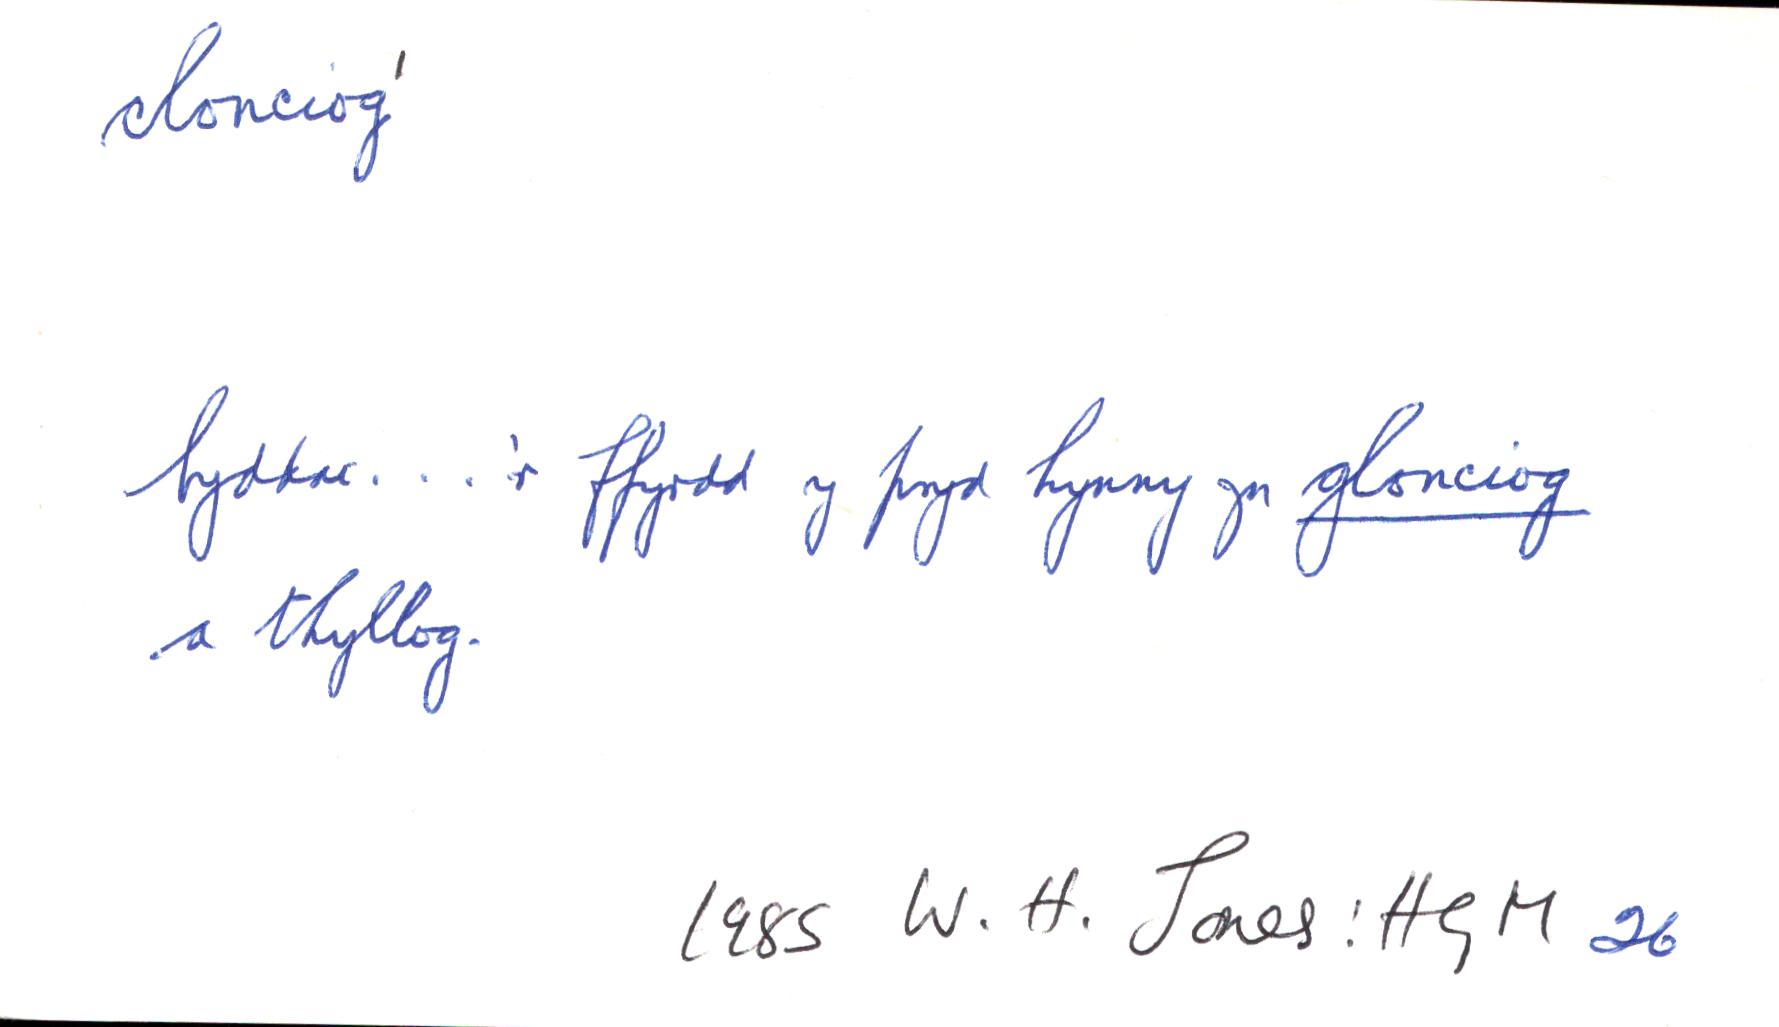 clonciog¹
byddai. . . 'r ffyrdd y pryd hynny yn glonciog
a thyllog.
1985 W. H. Jones: HGM 26